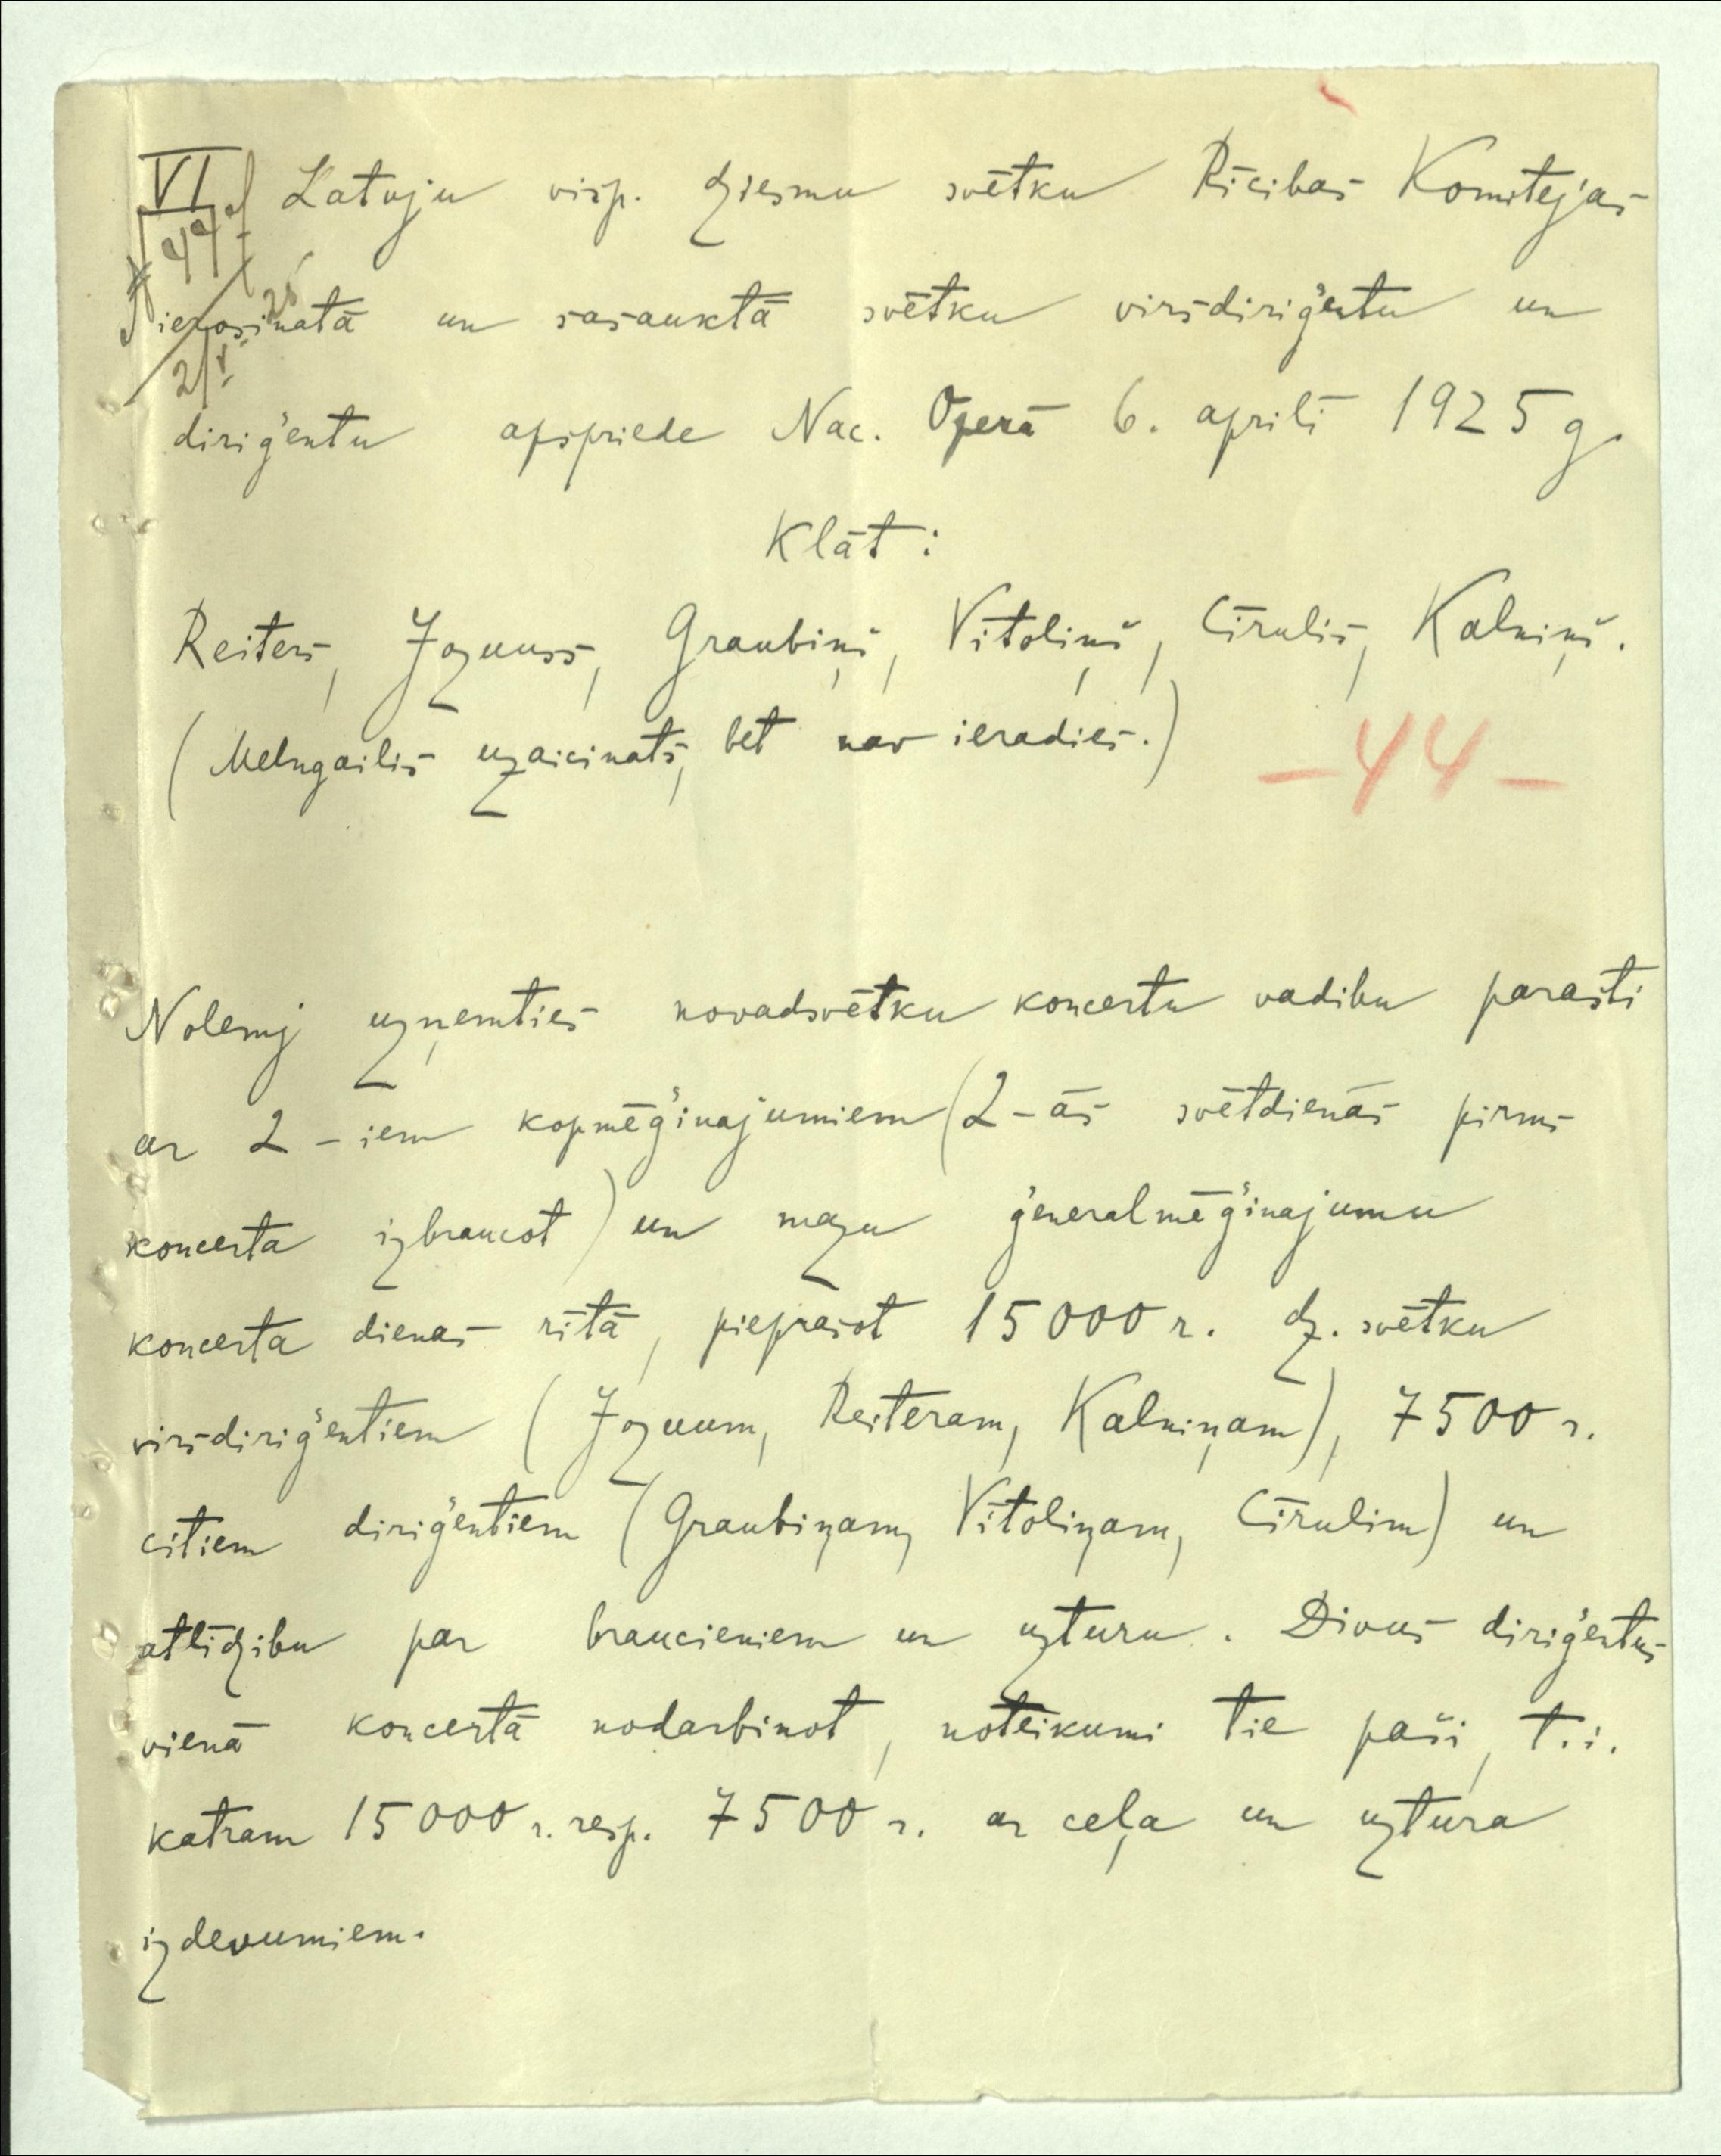 VI Latvju visp. dziesmu svētku Rīcibas Komitejas
ierosinatā un sasauktā svētku virsdiriģentu un
diriģentu apspriede Nac. Operā 6. aprilī 1925 g.
Klāt:
Reiters, Jozuuss, Graubiņš, Vītoliņš, Cīrulis, Kalniņš.
(Melngailis uzaicinats, bet nav ieradies.)
-44-
Nolemj uzņemties novadsvētku koncertu vadibu parasti
ar 2-iem kopmēģinajumiem (2-ās svētdienās pirms
koncerta izbraucot) un mazu ģeneralmēģinajumu
koncerta dienas rītā, pieprasot 15000 r. dz. svētku
virsdiriģentiem (Jozuum, Reiteram, Kalniņam), 7500 r.
citiem diriģentiem (Graubiņam, Vītoliņam, Cīrulim) un
atlīdzibu par braucieniem un uzturu. Divus diriģentus
vienā koncertā nodarbinot, noteikumi tie paši, t.i.
katram 15000 r. resp. 7500 r. ar ceļa un uztura
izdevumiem.